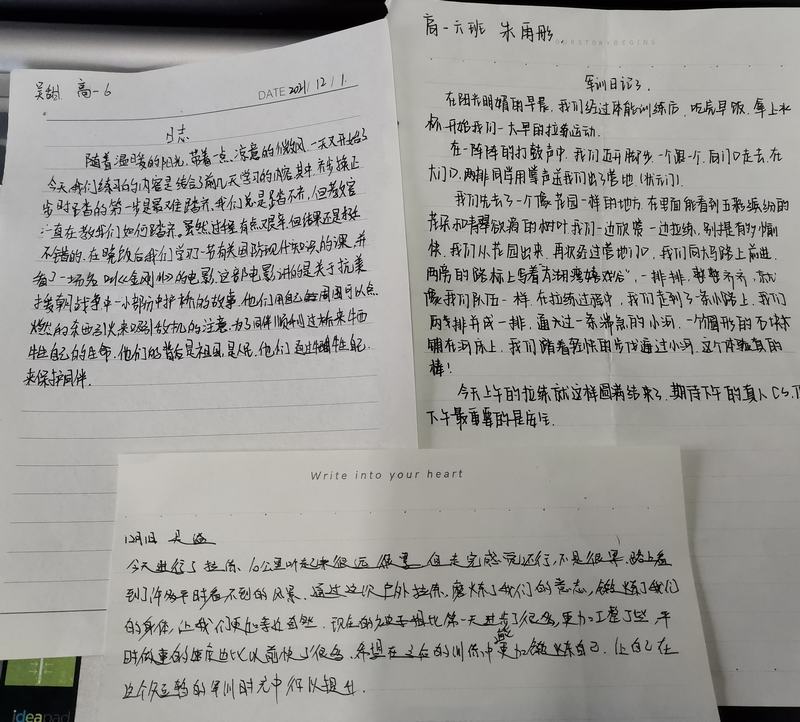 高一6
DATE 2021/12/1.
日志
随着温暖的阳光,带着一点凉意的微风,一天又开始了
今天我们练习的内容是结合了前几天学习的内容,其中齐步练正
步时踏的第一步是最难踏齐,我们总是踏不齐,但教官
一直在教我们如何踏齐,虽然过程有点艰辛,但结果还是挺
不错的。在晚饭后我们学习一节有关国防现代知识的课,并
看了一场名叫《金刚川》的电影,这部电影讲的是关于抗美
援朝战争中一小部份中护桥的故事,他们用自己周围可以点
燃的东西引火来吸引敌机的注意,为了同伴顺利过桥来牺
牲自己的生命,他们的背后是祖国,是人民,他们通过牺牲自己
来保护同伴。
高一六班 朱雨彤
OURSTORYBEGINS
军训日记3.
在阳光明媚的早晨,我们经过体能训练后,吃完早饭,拿上水
杯开始我们一大早的拉练运动。
在一阵阵的打鼓声中,我们迈开脚步,一个跟一个,向门口走去,在
大门口,两排同学用掌声送我们出了营地
我们先去了一个像花园一样的地方,在里面能看到五彩缤纷的
花朵和青翠欲滴的树叶我们一边欣赏一边拉练,别提有多愉
快,我们从花园出来,再次经过营地门口,我们向大马路上前进,
两旁的路标上写着,一排排,整整齐齐,就
像我们队伍一样,在拉练过程中,我们走到了一条小路上,我们
两排并成一排,通过一条湍急的小河,一个个圆形的石块
铺在河床上,我们踏着轻快的步伐通过小河,这个体验真的
棒!
今天上午的拉练就这样圆满结束了,期待下午的真人CS,
下午最重要的是
Write into your heart
12月1日
今天进行了拉练,10公里听起来很远很累,但走完感觉还行,不是很累,路上看
到了许多平时看不到的风景,通过这次户外拉练,磨炼了我们的意志,锻炼了我们
的身体,让我们更加亲近自然。现在的相比第一天进步了很多,更加工整了些,平
时做事的速度也比以前快了很多,希望在之后的训练中能更加锻炼自己,让自己在
这个的军训时光中得以提升.
ideapad